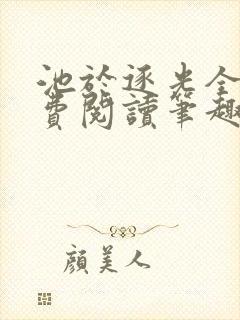 池於逐光全
費閱讀筆趣
顏美人